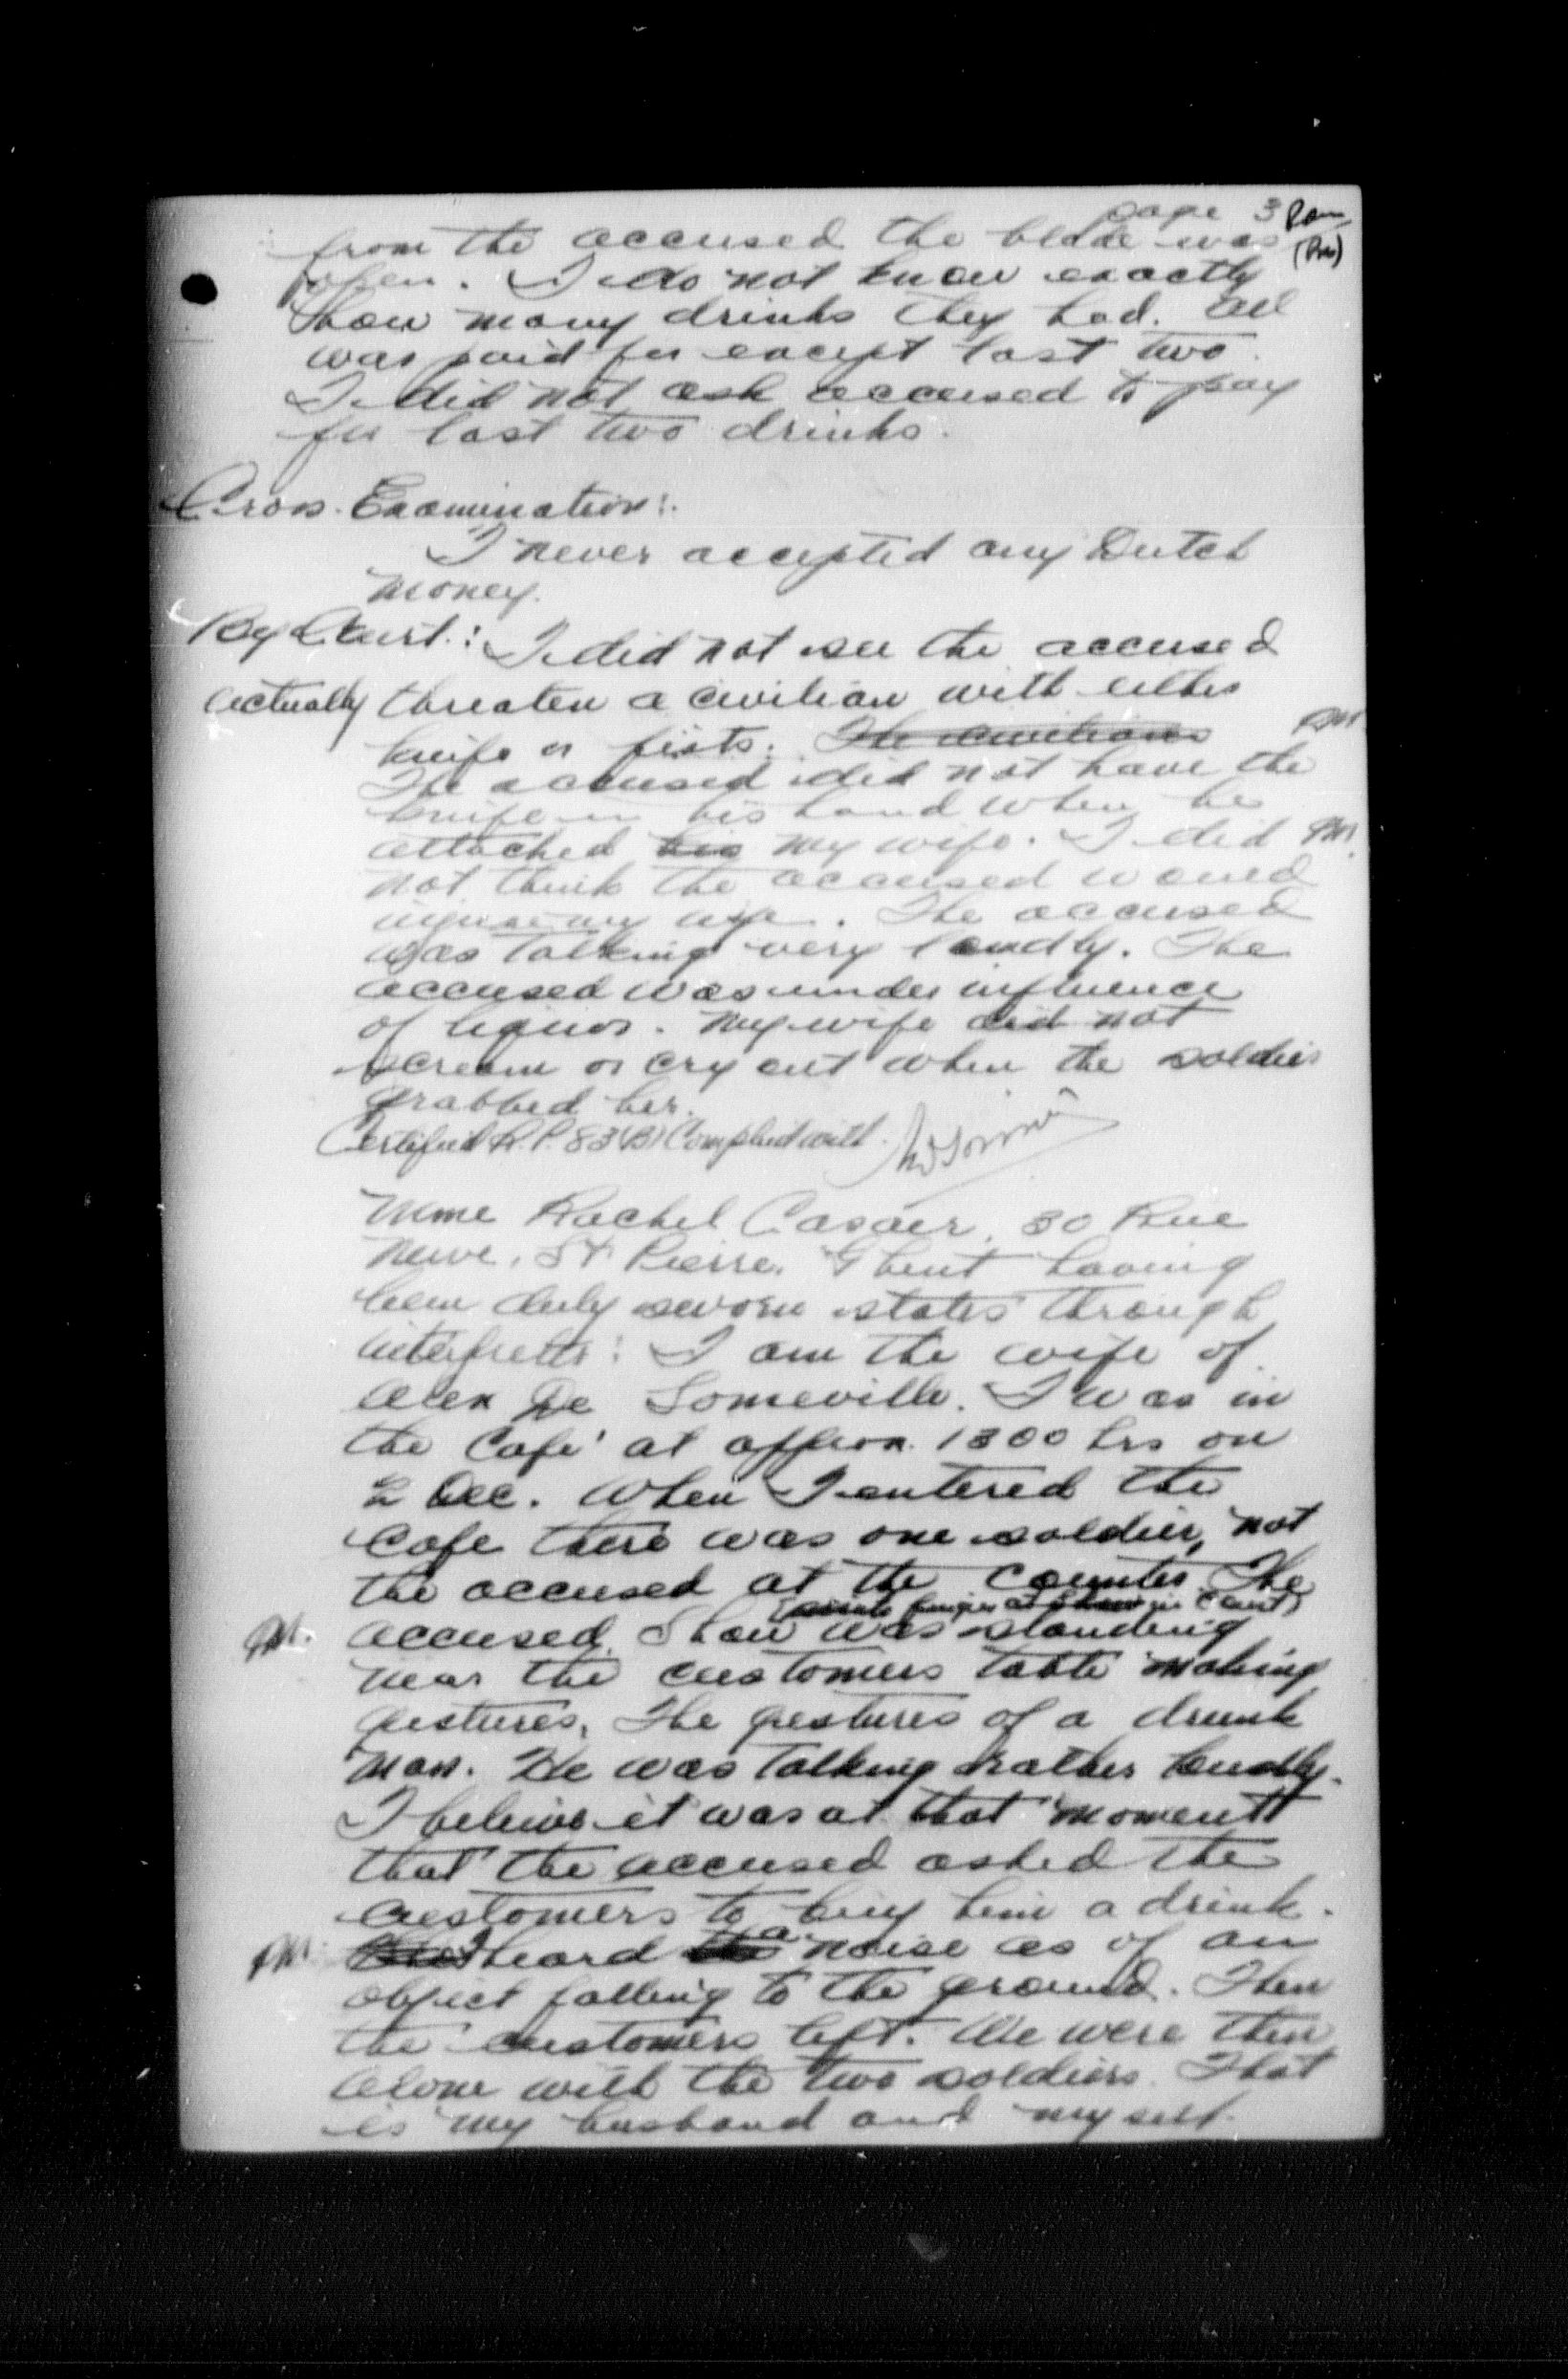 page 3
from the accused the blade was
open. I do not know exactly
how many drinks they had. All
was paid for except last two.
I did not ask accused to pay
for last two drinks.
Cross. Examination:
I never accepted any Dutch
money.
By Court: I did not see the accused
actually threaten a civilian with either
knife or fists. The civilians
The accused did not have the
knife in his hand when he
attacked his my wife. I did
not think the accused would
injure my wife. The accused
was talking very loudly. The
accused was under influence
of liquor. My wife did not
scream or cry out when the soldier
grabbed her.
Certified R.P. 83(B) Complied with.
Mme Rachel Casaer, 30 Rue
Neuve, St Pierre, Ghent having
been duly sworn states through
interpreter: I am the wife of
Alex De Someville. I was in
the Cafe at approx. 1800 hrs on
2 Dec. When I entered the
Cafe there was one soldier, not
the accused at the counter. The
(points finger at in Court)
accused was standing
near the customers table making
gestures, The gestures of a drunk
man. He was talking rather loudly.
I believe it was at that moment
that the accused asked the
customers to buy him a drink.
I heard the a noise as of an
object falling to the ground. Then
the customers left. We were then
alone with the two soldiers. That
is my husband and myself.